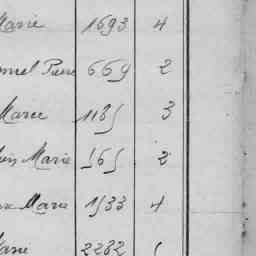 Marie 1693 4
Pierre 669 2
Marie 1185 3
Marie 565 2
Marie 1533 4
2282 1